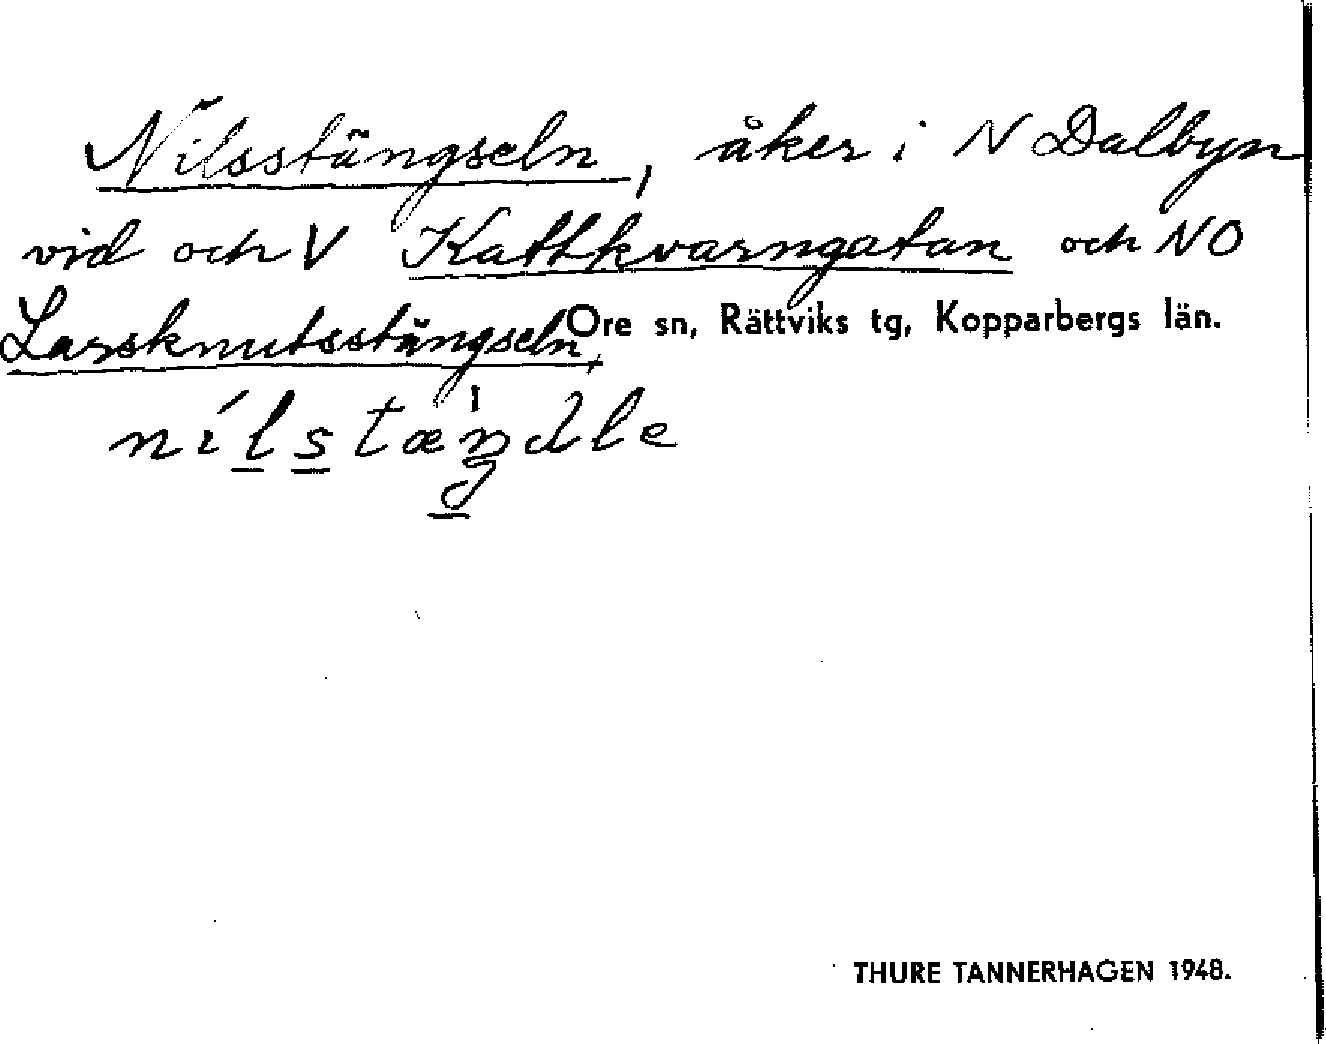 Nilsstängseln, åker i N Dalbyn
vid och V Kattkvarngatan och NO
Larsknutsstängseln,
Ore sn, Rättviks tg, Kopparbergs län.
THURE TANNERHAGEN 1948.